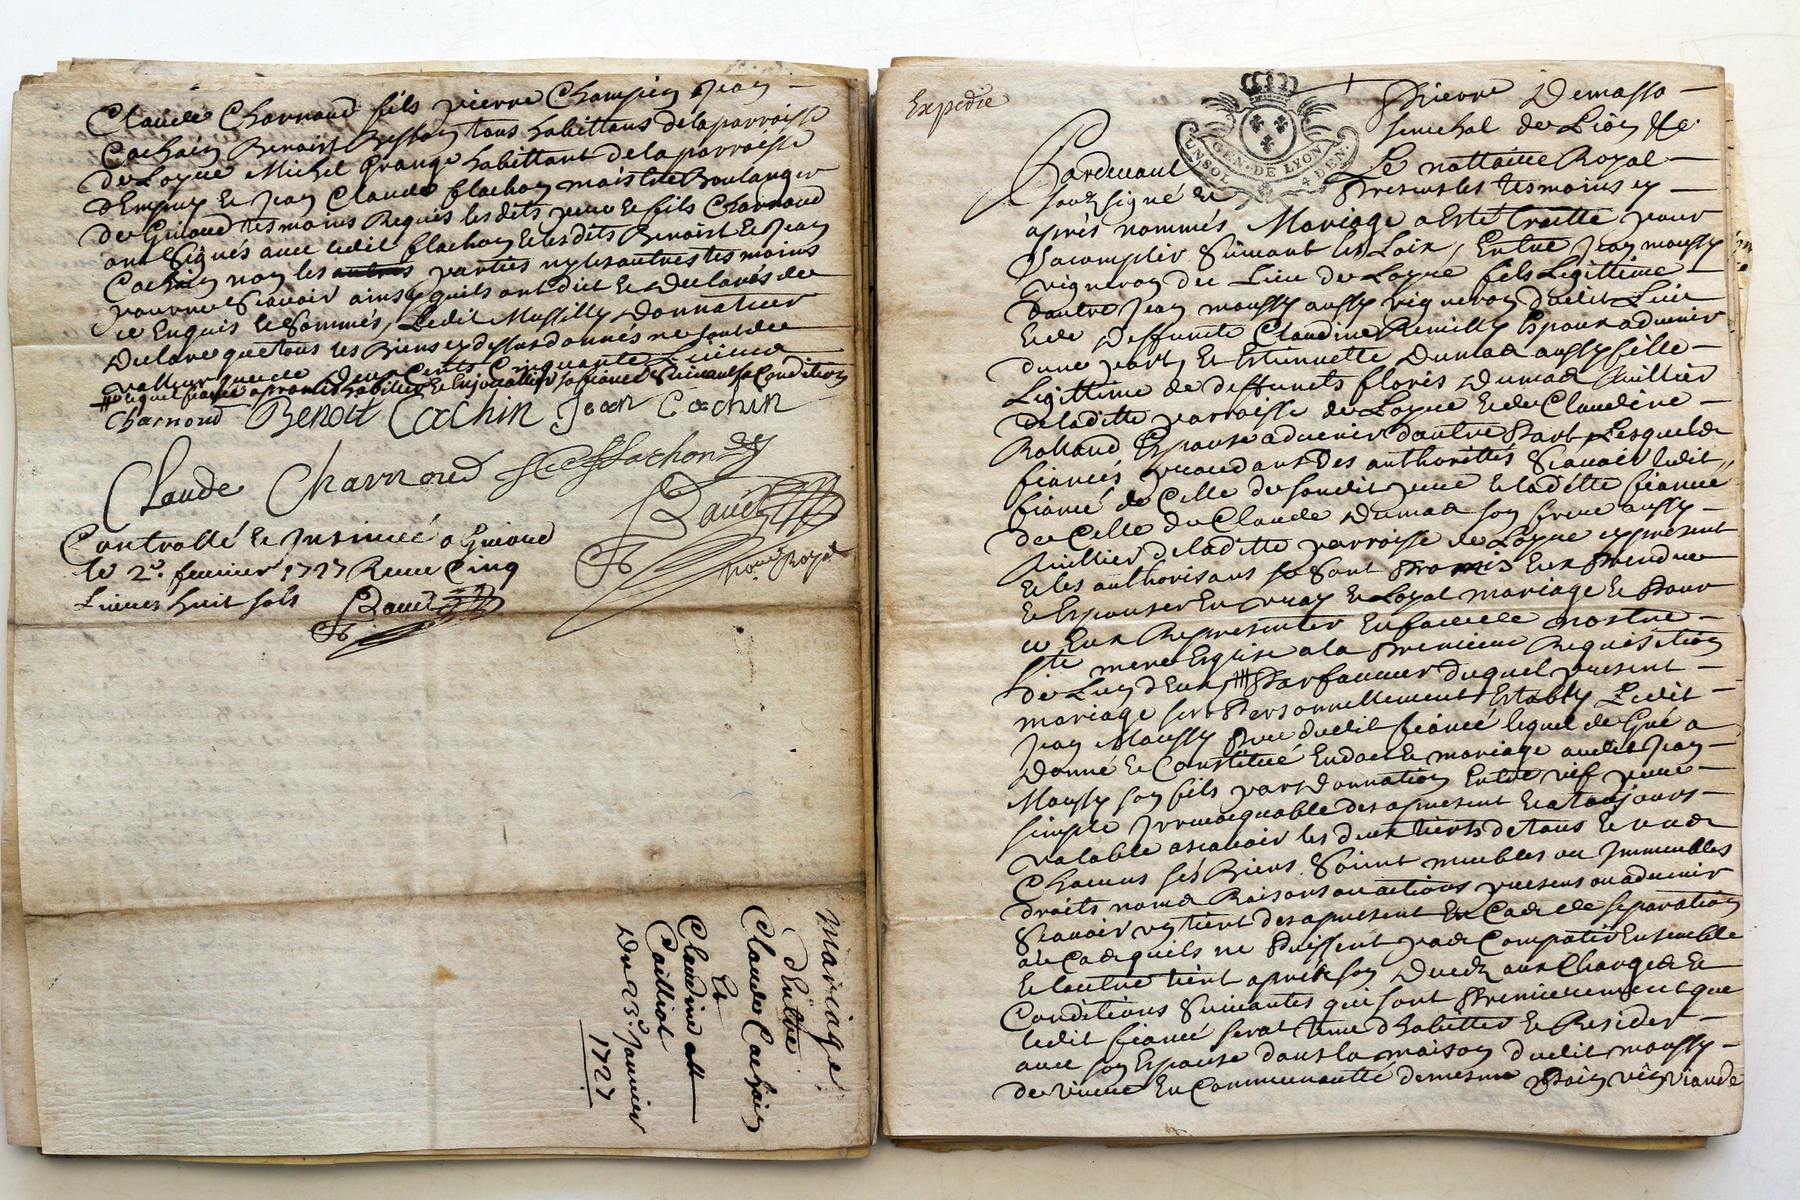 Claude Charnaud fils pierre Champin Jean
Cachain Benoist Besson tous habittans de la parroisse
de Loyue Michel Grange habittant de la parroisse
d'Empuy & Jean Claude flachon maistre Boulanger
de Guiaud tesmoins Requis lesdits pere & fils Charnaud
ont signés avec ledit flachon & lesdits Benoist & Jean
Cachain non les autres parties ny les autres tesmoins
pour ne scavoir ainsy quils ont dict & declarés de
ce Enquis & sommés, Ledit Donnateur
declare que tous les Biens cy dessus donnés ne sont de
valleur que de deux cents Cinquante Livres
lequel fiancé a promis habiller & Enjoualler sa fiancée suivant sa Condition
Charnoud Benoit Cachin Jean Cachin
Claude Charnoud flachon
Bauet
no.re Royal
Controllé & Insinué a Guiaud
le 2e. feuurier 1727 Receu Cinq
Liures huit sols
Bauet
Mariage
d'Entre
Claude Cachain
Et
Claudine
Cailliot
Du 23e. Januier
1727
Expedié
GEN. DE LYON
UN SOL 4 DEN.
Pierre Demasso
senechal de Lion &c.
Pardeuant Le nottaire Royal
soubsigné & Presents les tesmoins cy
après nommés Mariage a Esté traitté pour
sacomplir suiuant les Loix, Entre Jean moussy
vigneron du Lieu de Loyue fils Legittime
dautre Jean moussy aussy vigneron dudit Lieu
& de deffunte Claudine Remilly Espoux aduenir
dune part, & Estiennette Dumas aussy fille
Legittime de deffunets floris Dumas
de laditte parroisse de Loyue & de Claudine
Rolland Espouse aduenir dautre Part, Lesquels
fiancés procedants des authorittés scauoir ledit
fiancé de Celle de sondit pere & laditte fiancée
de Celle de Claude Dumas son frere aussy
de laditte parroisse de Loyue cy present
& les authorisans se sont Promis Eux Prendre
& Espouser En vray & Loyal mariage & Pour
ce Eux Representer En face de nostre
ste. mere Eglise a la Premiere Requisition
de Lun d'Eux, Par faueur duquel present
mariage sest Personnellement Estably Ledit
Jean Moussy Pere dudit fiancé lequel de Gré a
Donné & Constitué En dot & mariage audit Jean
Moussy son fils par donnation Entre vif pure
simple Irreuocquable des apresent & a toujours
valable a scauoir les deux tiers de tous & uns
Chacuns ses Biens soient meubles ou Immeubles
droits noms Raisons ou actions presens ou aduenir
scauoir un tiers des apresent En Cas de separation
au Cas quils ne Puissent pas Compatir Ensemble
& lautre tiers après son Decedz aux Charges &
Conditions suiuantes qui sont Premierement que
ledit fiancé serat tenu d'habitter & Resider
auec son Espouse dans la maison dudit moussy
de viure En Communautté de mesme Pain vin viande